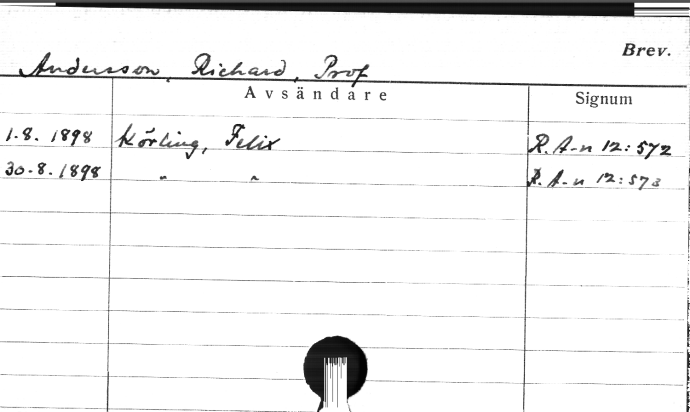 Brev.
Andersson, Richard, Prof
Avsändare Signum
1.8. 1898 Körling, Felix R. A-n 12:572
30.8.1898 " " R. A-n 12:573